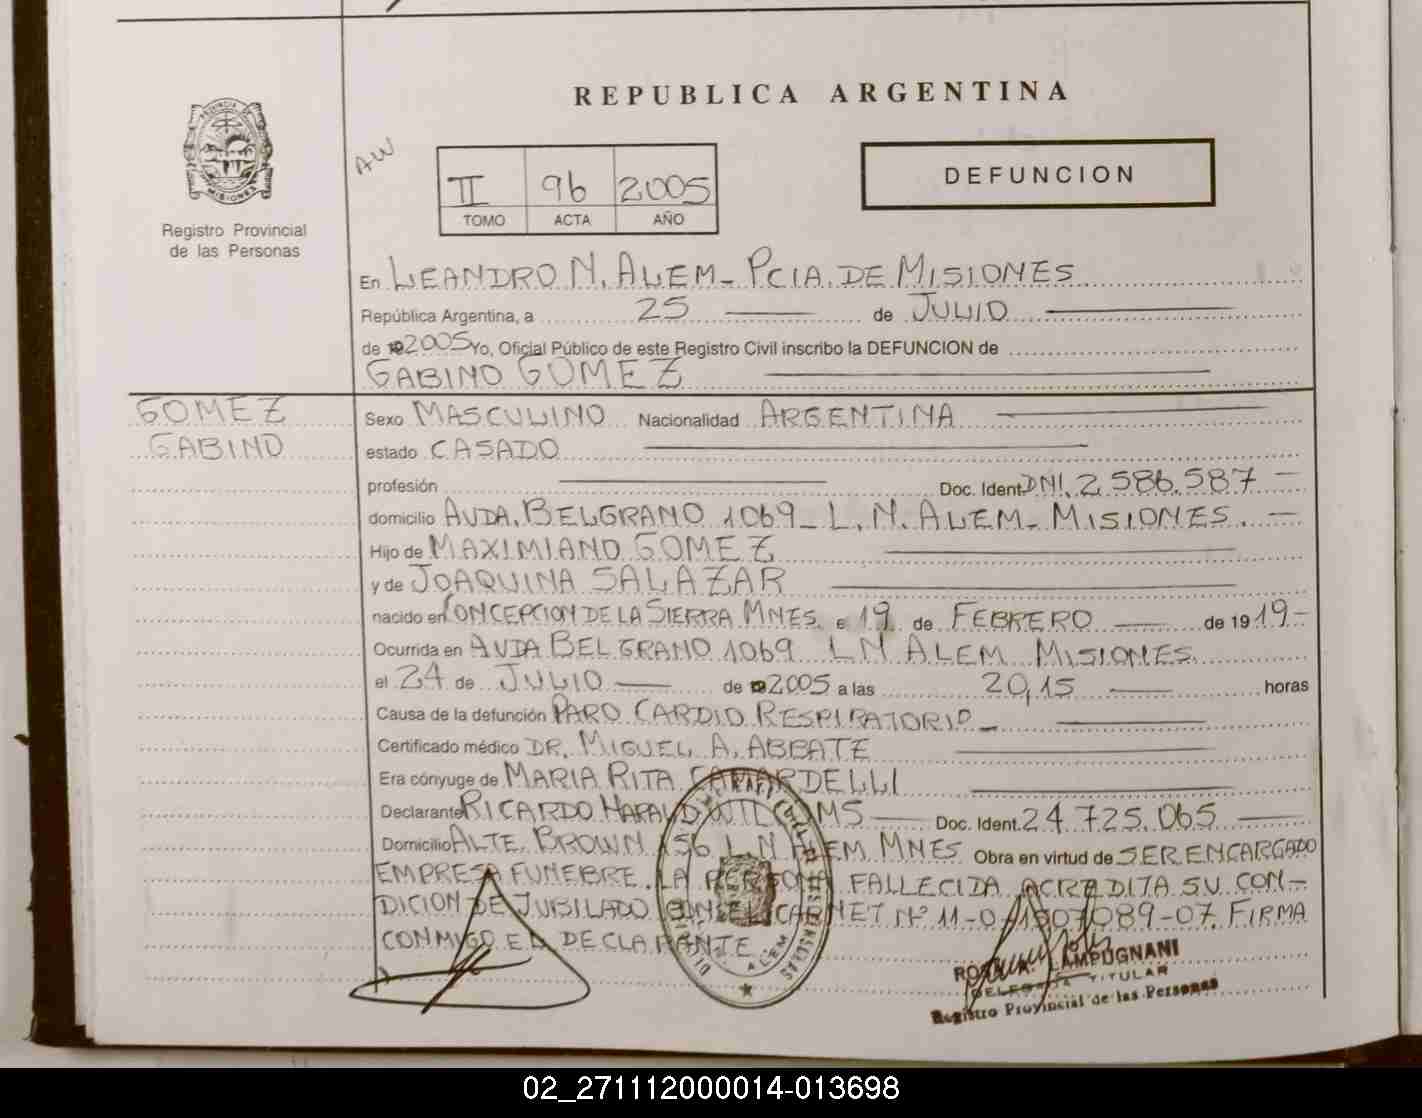 REPUBLICA ARGENTINA
PROVINCIA DE
MISIONES
Registro Provincial
de las Personas
AW
II 96 2005
TOMO ACTA AÑO
DEFUNCION
En LEANDRO N. ALEM - PCIA. DE MISIONES
República Argentina, a 25 de JULIO
de 2005 Yo, Oficial Público de este Registro Civil inscribo la DEFUNCION de
GABINO GOMEZ
GOMEZ
GABINO
Sexo MASCULINO Nacionalidad ARGENTINA
estado CASADO
profesión Doc. Ident. DNI. 2.586.587 -
domicilio AVDA. BELGRANO 1069 - L. N. ALEM - MISIONES. -
Hijo de MAXIMIANO GOMEZ
y de JOAQUINA SALAZAR
nacido en CONCEPCION DE LA SIERRA MNES. e 19 de FEBRERO de 1919 -
Ocurrida en AVDA BELGRANO 1069 L N ALEM MISIONES
el 24 de JULIO de 2005 a las 20,15 horas
Causa de la defunción PARO CARDIO RESPIRATORIO -
Certificado médico DR. MIGUEL A. ABBATE
Era cónyuge de MARIA RITA CAMARDELLI
Declarante RICARDO Doc. Ident. 24.725.065
Domicilio ALTE. BROWN 156 L N ALEM MNES Obra en virtud de SER ENCARGADO
EMPRESA FUNEBRE. LA PERSONA FALLECIDA ACREDITA SU CON-
DICION DE JUBILADO CARNET Nº 11-0-1807089-07. FIRMA
CONMIGO EL DECLARANTE
LAMPUGNANI
DELEGADA TITULAR
Registro Provincial de las Personas
02_271112000014-013698